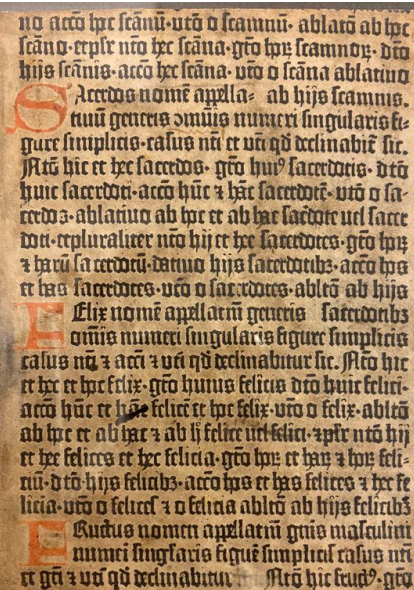 no accō hoc scānū· vtō o scamnū· ablatō ab hoc
scāno· etplr ntō hec scāna· gtō hoꝝ scamnoꝝ· dtō
hijs scānis· accō hec scāna· vto o scāna ablatiuo
Acerdos nomē appella- ab hijs scamnis.
tiuū generis ɔmūis numeri singularis fi-
gure simplicis· casus nti et vti qd declinabit̄ sic.
Ntō hic et hec sacerdos· gtō huiꝰ sacerdotis· dtō
huic sacerdoti· accō hūc ⁊ hāc sacerdotē· vtō o sa-
cerdos· ablatiuo ab hoc et ab hac sacdote uel sacer
doti· etpluraliter ntō hij et hee sacerdotes· gtō hoꝝ
⁊ harū sacerdotū· datiuo hijs sacerdotibꝫ· accō hos
et has sacerdotes· vtō o sacerdotes· abltō ab hijs
Elix nomē appellatiū generis sacerdotibꝫ
omīs numeri singularis figure simplicis
casus nti ⁊ acti ⁊ vti qd declinabitur sic. Ntō hic
et hec et hoc felix· gtō huius felicis dtō huic felici·
accō hūc et hāc felicē et hoc felix· vtō o felix· abltō
ab hoc et ab hac ⁊ ab h felice uel felici· ⁊plr ntō hij
et hee felices et hec felicia· gtō hoꝝ et haꝝ ⁊ hoꝝ feli-
ciū· dtō· hijs felicibꝫ· accō hos et has felices ⁊ hec fe
licia· vtō o felices ⁊ o felicia abltō ab hijs felicibꝫ
Ructus nomen appellatiū gn̄is masculini
numeri singlaris figure simplicis casus nti
et gti ⁊ vti qd declinabitur Ntō hic fructꝰ· gtō